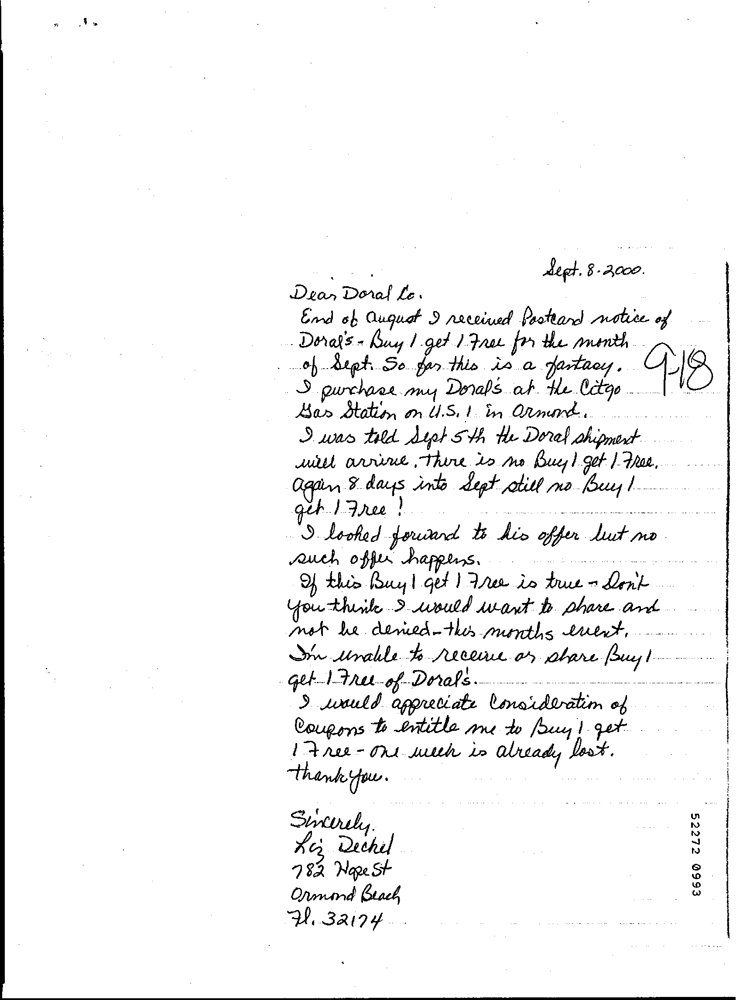 Sept. 8-2000.
Dear Doral Co.
End of August I received Postcard notice of
Doral's - Buy 1 get 1 Free for the month
of Sept. So far this is a fantasy.
9-18
I purchase my Doral's at the Citgo
Gas Station on U.S. 1 in Ormond.
I was told Sept 5th the Doral shipment
will arrive. There is no Buy 1 get 1 Free.
Again 8 days into Sept still no Buy 1
get 1 Free!
I looked forward to his offer but no
such offer happens.
If this Buy 1 get 1 Free is true - Don't
you think I would want to share and
not be denied - this months event.
I'm unable to receive or share Buy 1
get 1 Free of Doral's.
I would appreciate Consideration of
Coupons to entitle me to Buy 1 get
1 Free - one week is already lost.
Thank you.
Sincerely,
Liz Deckel
782 Hope St
Ormond Beach
Fl. 32174
52272 0993